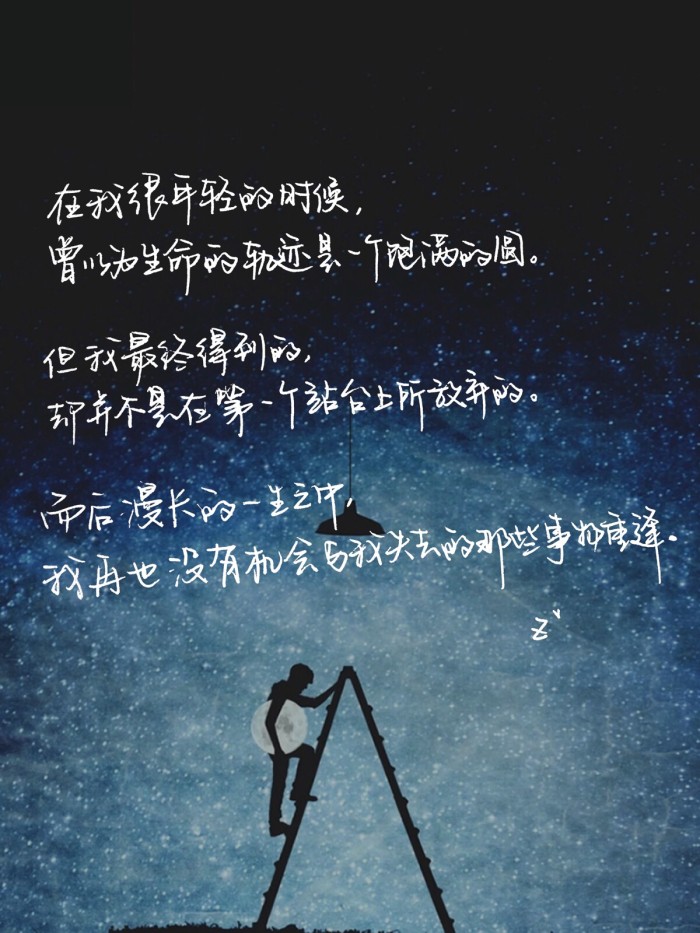 在我很年轻的时候,
曾以为生命的轨迹是一个饱满的圆。
但我最终得到的,
却并不是在第一个站台上所放弃的。
而后漫长的一生之中,
我再也没有机会与我失去的那些事物重逢。
Z